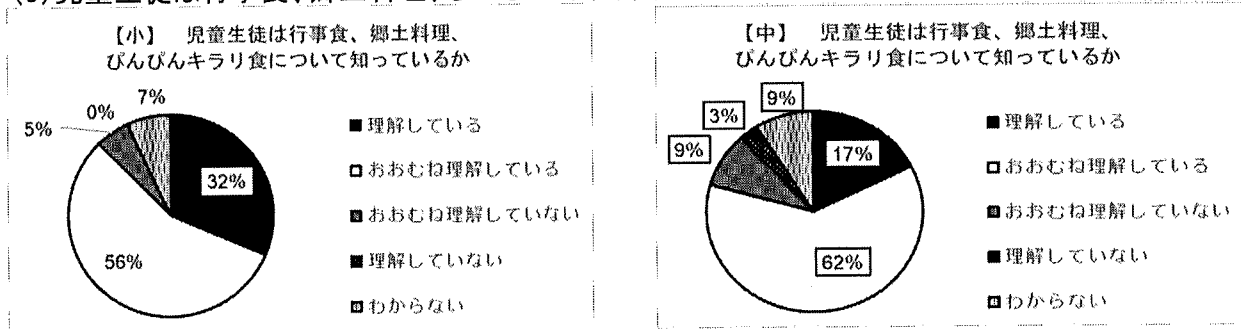 【小】 児童生徒は行事食、郷土料理、
ぴんぴんキラリ食について知っているか
7%
0%
5%
32%
56%
■理解している
□おおむね理解している
■おおむね理解していない
■理解していない
□わからない
【中】 児童生徒は行事食、郷土料理、
ぴんぴんキラリ食について知っているか
9%
3%
9%
17%
62%
■理解している
□おおむね理解している
■おおむね理解していない
■理解していない
□わからない